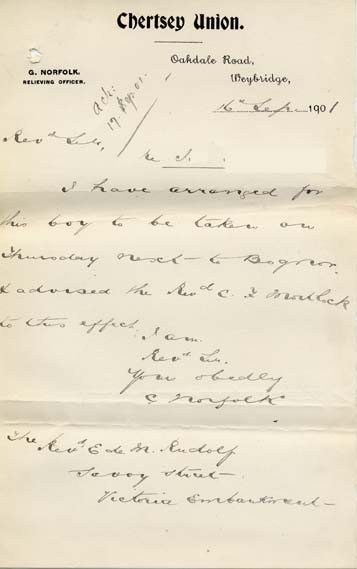 Chertsey Union.
Oakdale Road,
Weybridge,
G. NORFOLK.
RELIEVING OFFICER.
ack.
17. Sep. 01.
16th Sep. 1901
Revd Sir,
re J.
I have arranged for
this boy to be taken on
Thursday next to Bognor
& advised the Revd C. F. Mortlock
to this effect.
I am
Revd Sir.
Your obedly
G Norfolk
The
Revd E de M. Rudolf
Savoy Street
Victoria Embankment